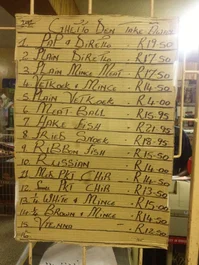 Ghetto Den Take Aways
1. PAP & DIRETLO - R19.50
2 PLAIN DIRETLO - R17.50
3 PLAIN MINCE MEAT - R17.50
4 VETKOEK & MINCE - R14.50
5 PLAIN VETKOEK - R4.00
6 MEAT BALL - R15.95
7 HAKE FISH - R21.95
8 FRIED SNOEK - R18.95
9 RIBBON FISH - R15.50
10 RUSSIAN - R14.00
11 MED PKT CHIP - R14.50
12 SMALL PKT CHIP - R13.50
13 ¼ WHITE & MINCE - R15.00
14 ¼ BROWN & MINCE - R14.50
15 VIENNA - R12.50